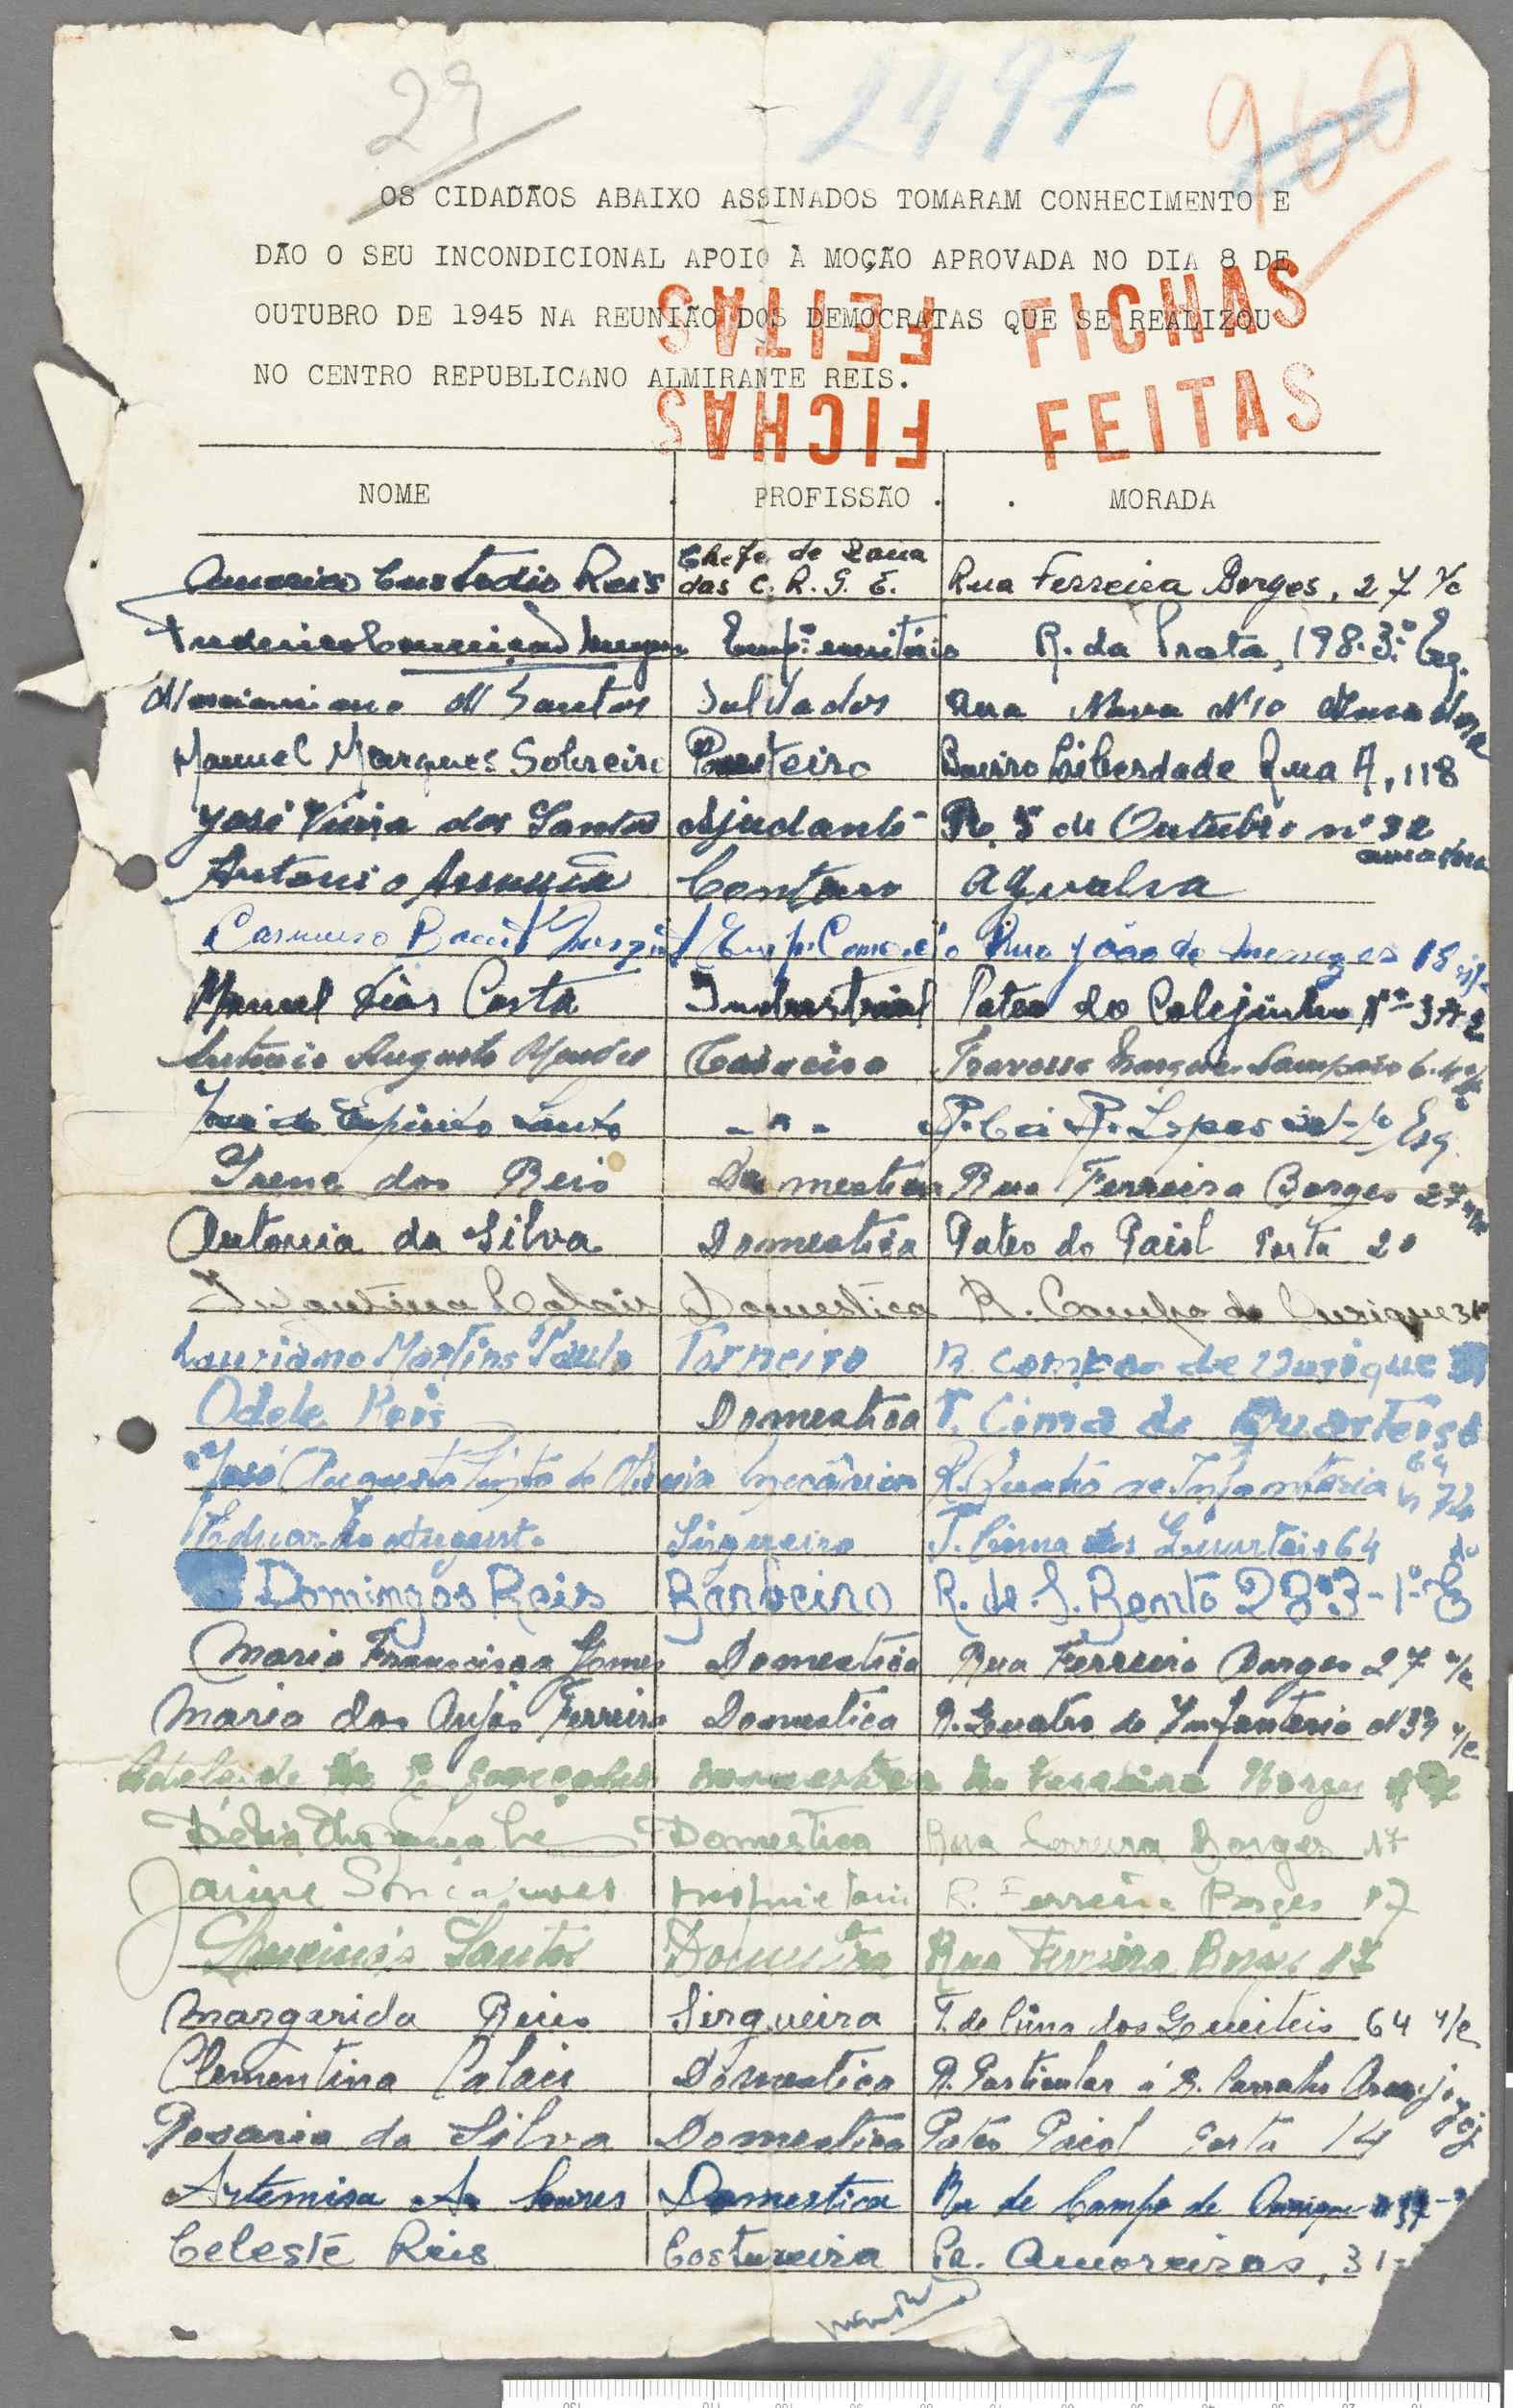 29
2497
960
OS CIDADÃOS ABAIXO ASSINADOS TOMARAM CONHECIMENTO E
DÃO O SEU INCONDICIONAL APOIO À MOÇÃO APROVADA NO DIA 8 DE
OUTUBRO DE 1945 NA REUNIÃO DOS DEMOCRATAS QUE SE REALIZOU
NO CENTRO REPUBLICANO ALMIRANTE REIS.
FICHAS FEITAS
FICHAS FEITAS
NOME PROFISSÃO MORADA
Custodio Reis Chefe de Zona das C. R. G. E. Rua Ferreira Borges, 27 r/c
R. da Prata, 198-3º Esq.
Santos Soldador Rua Nova Nº10 Amadora
Manuel Marques Sobreiro Bairro Liberdade Rua A, 118
José Vieira dos Santos Ajudante R. 5 de Outubro nº 32 amadora
Antonio Agualva
Rua João de Menezes 18
Manuel Dias Costa Industrial Pateo do Colejinho Nº 3
Antonio Augusto Mendes Caixeiro Travessa Sampaio
José do Espirito Santo - " - Lopes Esq.
Irene dos Reis Domestica Rua Ferreira Borges 27
Antonia da Silva Domestica Pateo do Paiol Porta 20
Calais Domestica R. Campo de Ourique
Lauriano Martins Paulo Torneiro R. Campo de Ourique
Odete Reis Domestica T. Cima de Quarteis 64
José Augusto Pinto de Oliveira Mecânico R. Quatro de Infantaria
Eduardo Augusto Sirgueiro T. Cima dos Quarteis 64
Domingos Reis Barbeiro R. de S. Bento 283-1º-E
Maria Francisca Gomes Domestica Rua Ferreira Borges 27 r/c
Maria dos Anjos Ferreira Domestica R. Quatro de Infantaria Nº 39 r/c
Adelaide Gonçalves Domestica Rua Ferreira Borges
Domestica Rua Ferreira Borges 17
Jaime Gonçalves R. Ferreira Borges 17
Santos Domestica Rua Ferreira Borges 17
Margarida Reis Sirgueira T. de Cima dos Quarteis 64 r/c
Clementina Calais Domestica R. Particular á R. Carvalho Araujo
Rosaria da Silva Domestica Pateo Paiol Porta 14
Artemisa Soares Domestica Rua de Campo de Ourique
Celeste Reis Costureira Amoreiras, 31